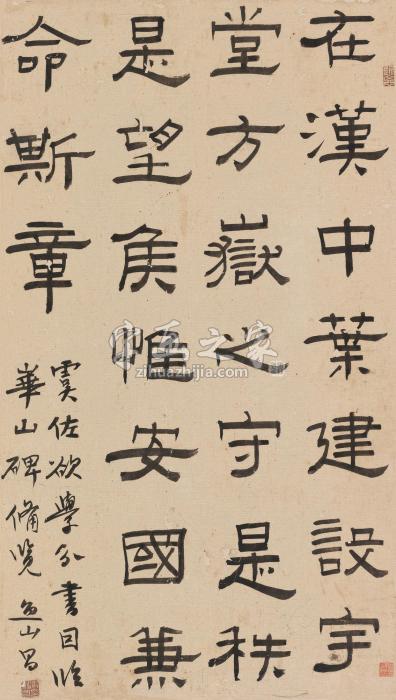 在漢中葉建設宇
堂方嶽之守是秩
是望侯惟安國兼
命斯章
虞佐欲學分書因臨
華山碑備覽 山昌
字画之家
zihuazhijia.com